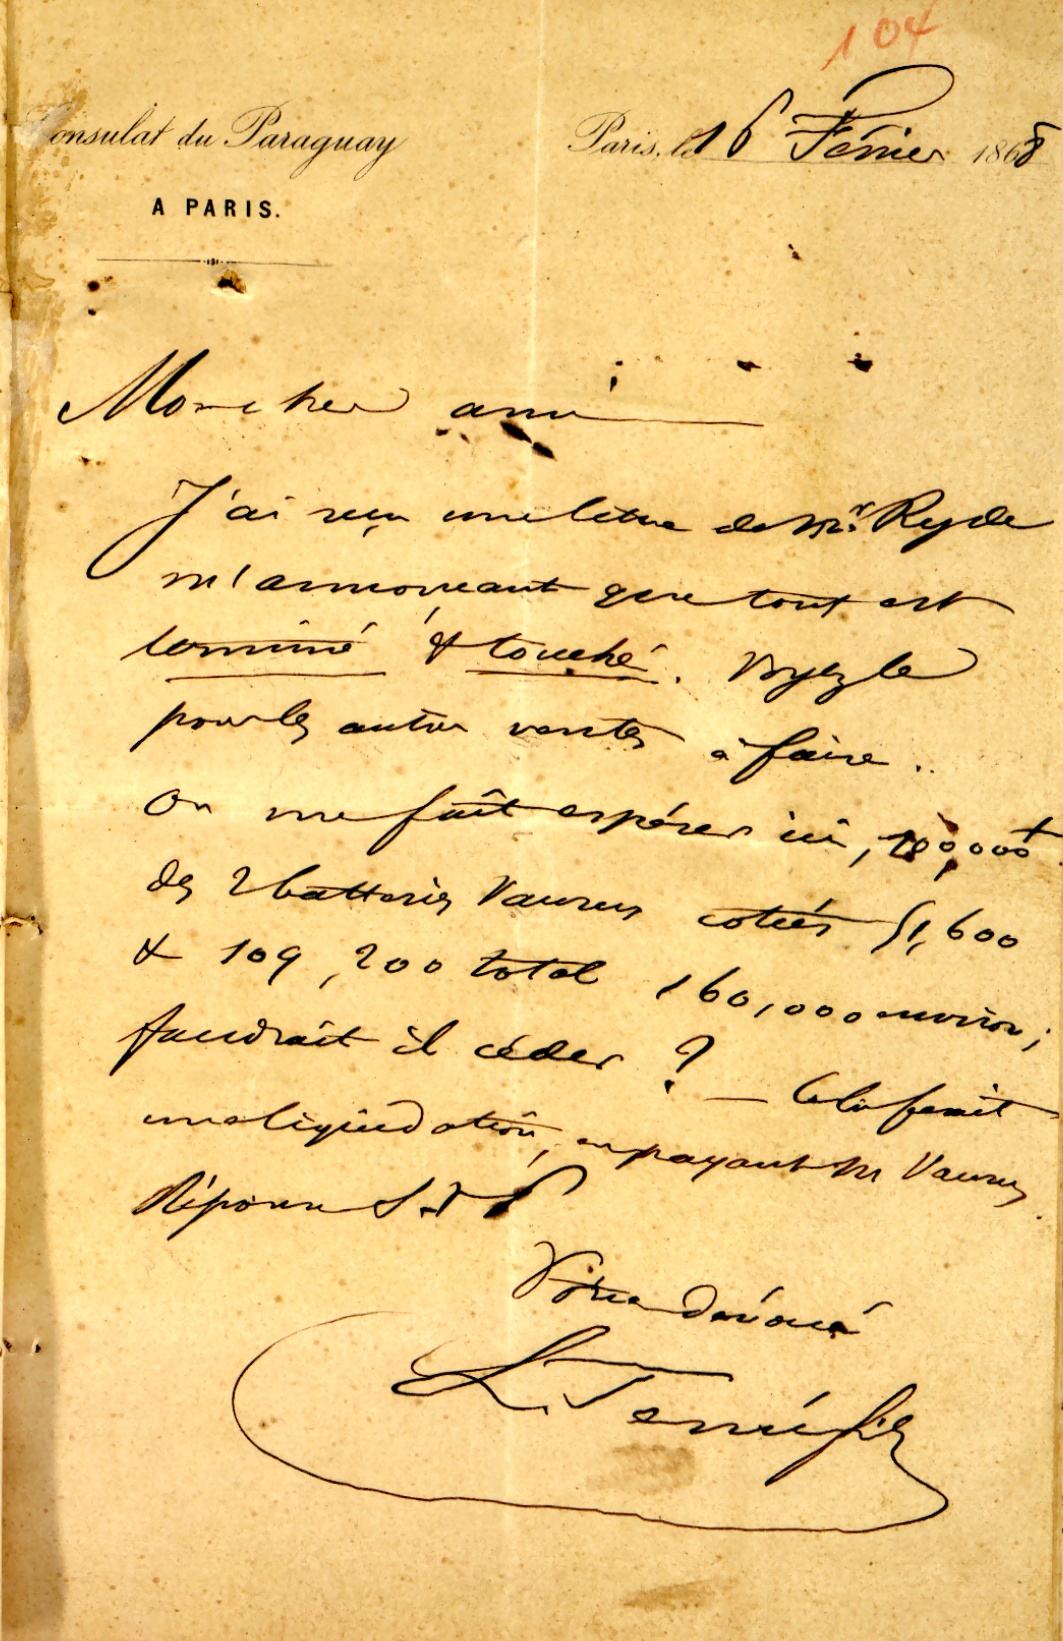 104
Consulat du Paraguay
A PARIS.
Paris, le 16 Février 1868
Mon cher ami
J'ai reçu une lettre de Mr. Ryde
m'annonçant que tout est
terminé & touché. Voyez le
pour les autres ventes à faire.
On me fait espérer ici, 100,000 f
des 2 batteries Vavreux cotées 51,600
& 109,200 total 160,000 environ;
faudrait il céder ? — Cela ferait
une liquidation, en payant Mr
Réponse S.V.P
Votre dévoué